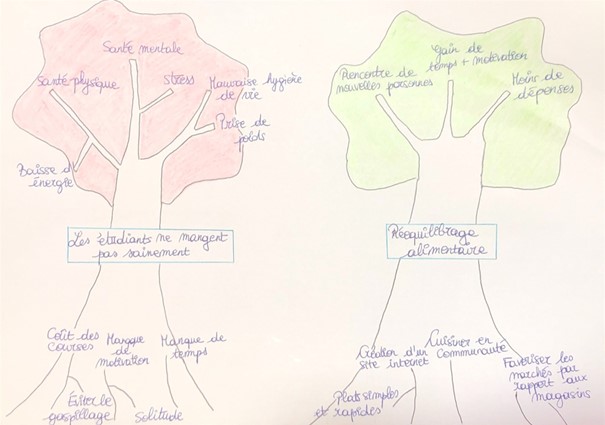 Santé mentale
Santé physique
stress
Mauvaise hygiène
de vie
Prise de
poids
Baisse d'
énergie
Les étudiants ne mangent
pas sainement
Coût des
courses
Manque
de
motivation
Manque de
temps
Éviter le
gaspillage
Solitude
Gain de
temps + motivation
Rencontre de
nouvelles personnes
Moins de
dépenses
Rééquilibrage
alimentaire
Création d'un
site internet
Cuisiner en
Communauté
Favoriser les
marchés par
rapport aux
magasins
Plats simples
et rapides